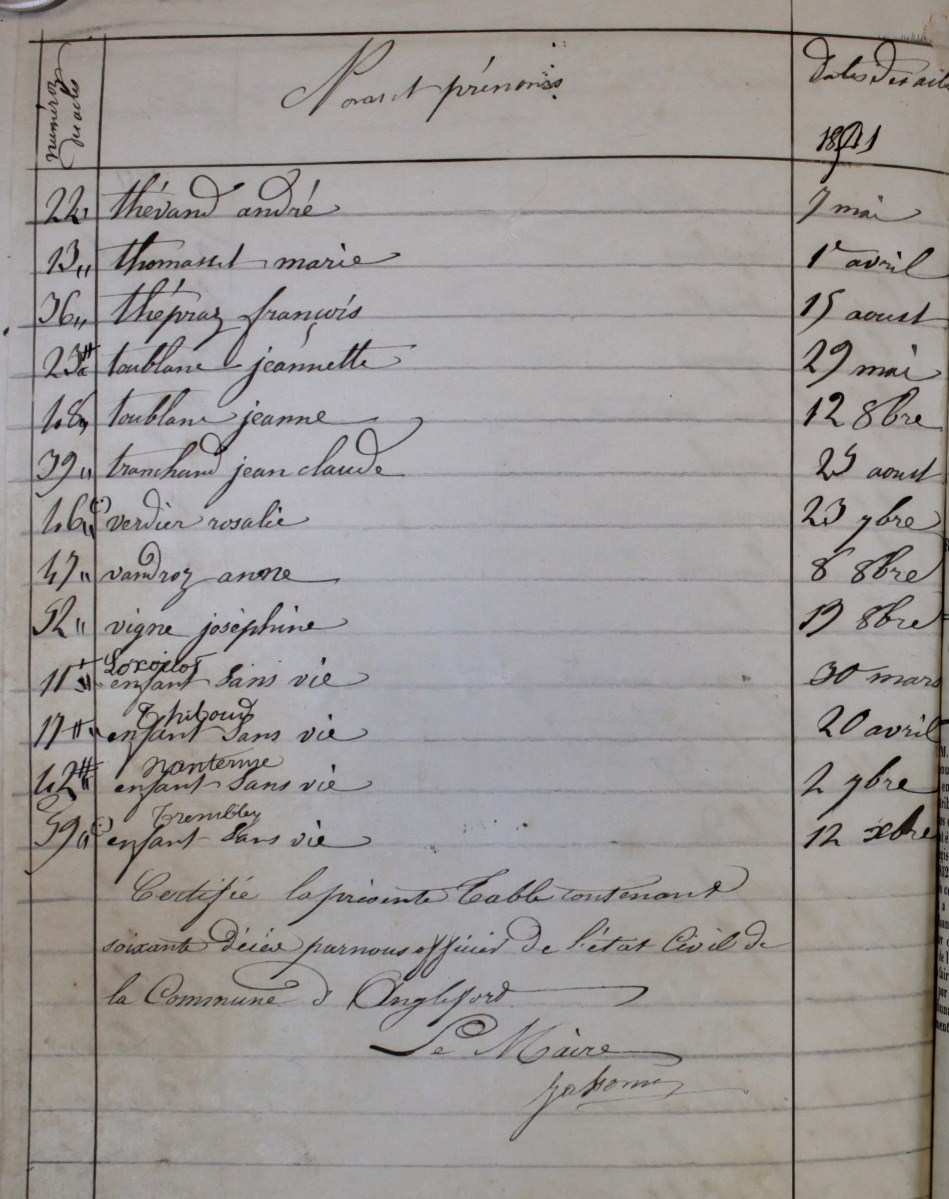 numéroz des actes Noms et prénoms Dates des acte
1871
22 thévand andré 7 mai
13 thomasset marie 1r avril
36 thépraz françois 15 aoust
23 toublanc jeannette 29 mai
48 toublanc jeanne 12 8bre
39 tranchand jean claude 25 aoust
46 verdier rosalie 23 7bre
47 vandroz anne 8 8bre
52 vigne joséphine 19 8bre
11 enfant sans vie 30 mars
Thiboud
17 enfant sans vie 20 avril
nanterme
42 enfant sans vie 2 7bre
Trembley
59 enfant sans vie 12 xbre
Certifiée la présente Table contenant
soixante décés par nous officier de l'état Civil de
la Commune d'Anglefort
Le Maire